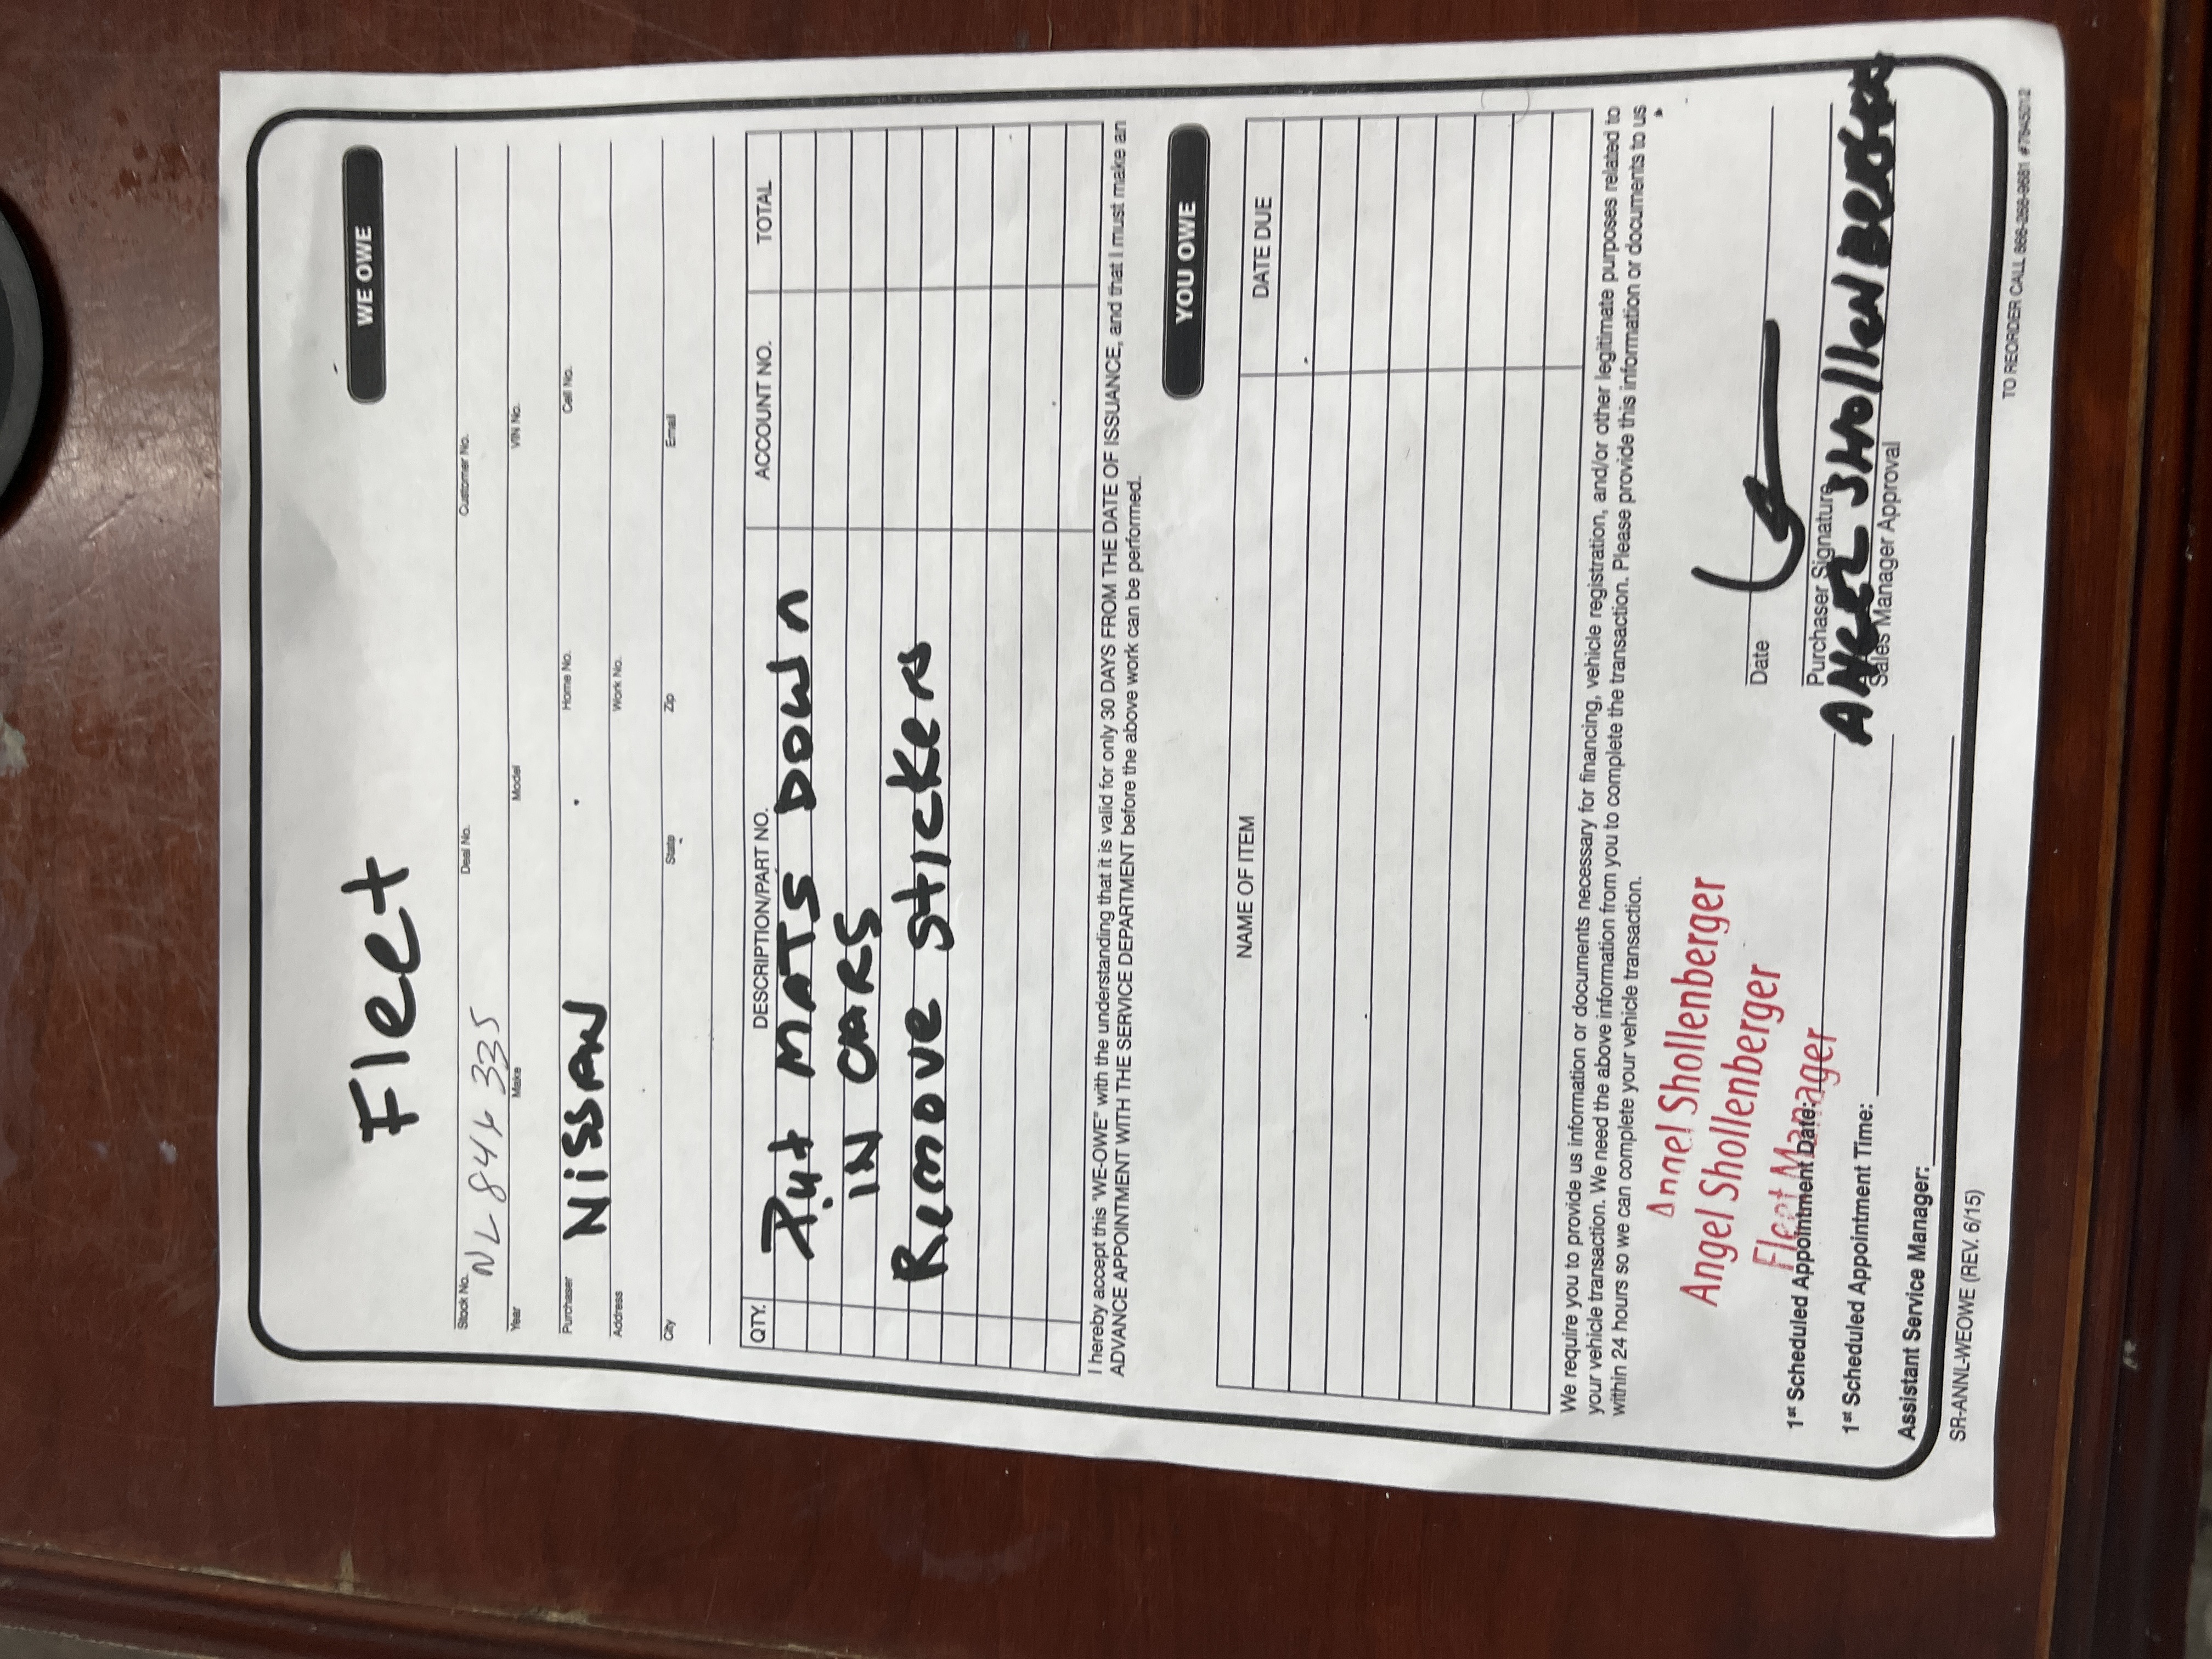 Fleet
WE OWE
Stock No. Deal No. Customer No.
Year Make Model VIN No.
Purchaser Nissan Home No. Cell No.
Address Work No.
City State Zip Email
QTY. DESCRIPTION/PART NO. ACCOUNT NO. TOTAL
Put MATS DOWN
IN CARS
Remove stickers
I hereby accept this "WE-OWE" with the understanding that it is valid for only 30 DAYS FROM THE DATE OF ISSUANCE, and that I must make an
ADVANCE APPOINTMENT WITH THE SERVICE DEPARTMENT before the above work can be performed.
YOU OWE
NAME OF ITEM DATE DUE
We require you to provide us information or documents necessary for financing, vehicle registration, and/or other legitimate purposes related to
your vehicle transaction. We need the above information from you to complete the transaction. Please provide this information or documents to us
within 24 hours so we can complete your vehicle transaction.
Angel Shollenberger
Angel Shollenberger
Fleet Manager
Date
1st Scheduled Appointment Date:
Purchaser Signature
ANGEL SHOllENBERGER
1st Scheduled Appointment Time:
Sales Manager Approval
Assistant Service Manager:
SR-ANNL-WEOWE (REV. 6/15)
TO REORDER CALL 866-268-9681 #7645012